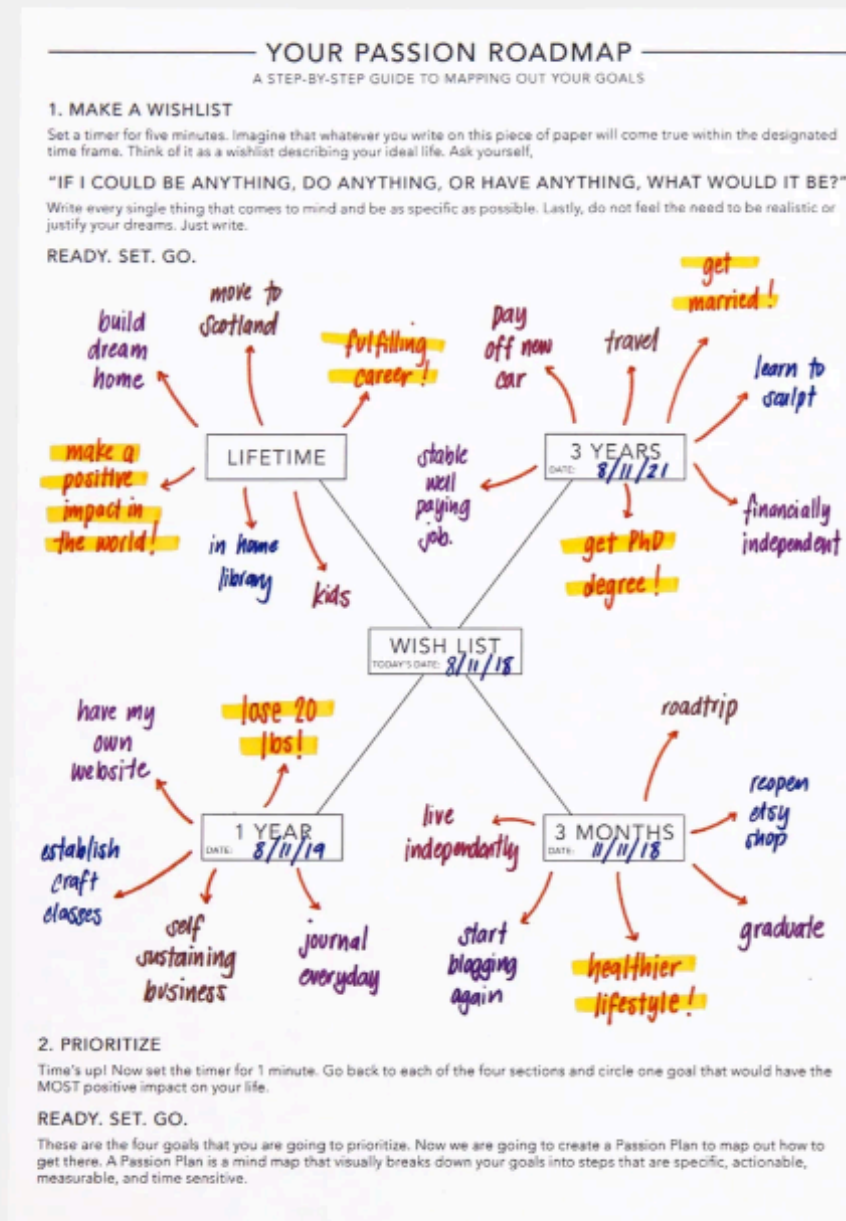 YOUR PASSION ROADMAP
A STEP-BY-STEP GUIDE TO MAPPING OUT YOUR GOALS
1. MAKE A WISHLIST
Set a timer for five minutes. Imagine that whatever you write on this piece of paper will come true within the designated
time frame. Think of it as a wishlist describing your ideal life. Ask yourself,
"IF I COULD BE ANYTHING, DO ANYTHING, OR HAVE ANYTHING, WHAT WOULD IT BE?"
Write every single thing that comes to mind and be as specific as possible. Lastly, do not feel the need to be realistic or
justify your dreams. Just write.
READY. SET. GO.
build
dream
home
move to
scotland
fulfilling
career!
make a
positive
impact in
the world!
LIFETIME
in home
library
kids
pay
off new
car
travel
get
married!
learn to
sculpt
stable
well
paying
job.
3 YEARS
DATE: 8/11/21
get PhD
degree!
financially
independent
WISH LIST
TODAY'S DATE: 8/11/18
have my
own
website
lose 20
lbs!
1 YEAR
DATE: 8/11/19
establish
craft
classes
self
sustaining
business
journal
everyday
roadtrip
live
independently
3 MONTHS
DATE: 11/11/18
reopen
etsy
shop
start
blogging
again
healthier
lifestyle!
graduate
2. PRIORITIZE
Time's up! Now set the timer for 1 minute. Go back to each of the four sections and circle one goal that would have the
MOST positive impact on your life.
READY. SET. GO.
These are the four goals that you are going to prioritize. Now we are going to create a Passion Plan to map out how to
get there. A Passion Plan is a mind map that visually breaks down your goals into steps that are specific, actionable,
measurable, and time sensitive.